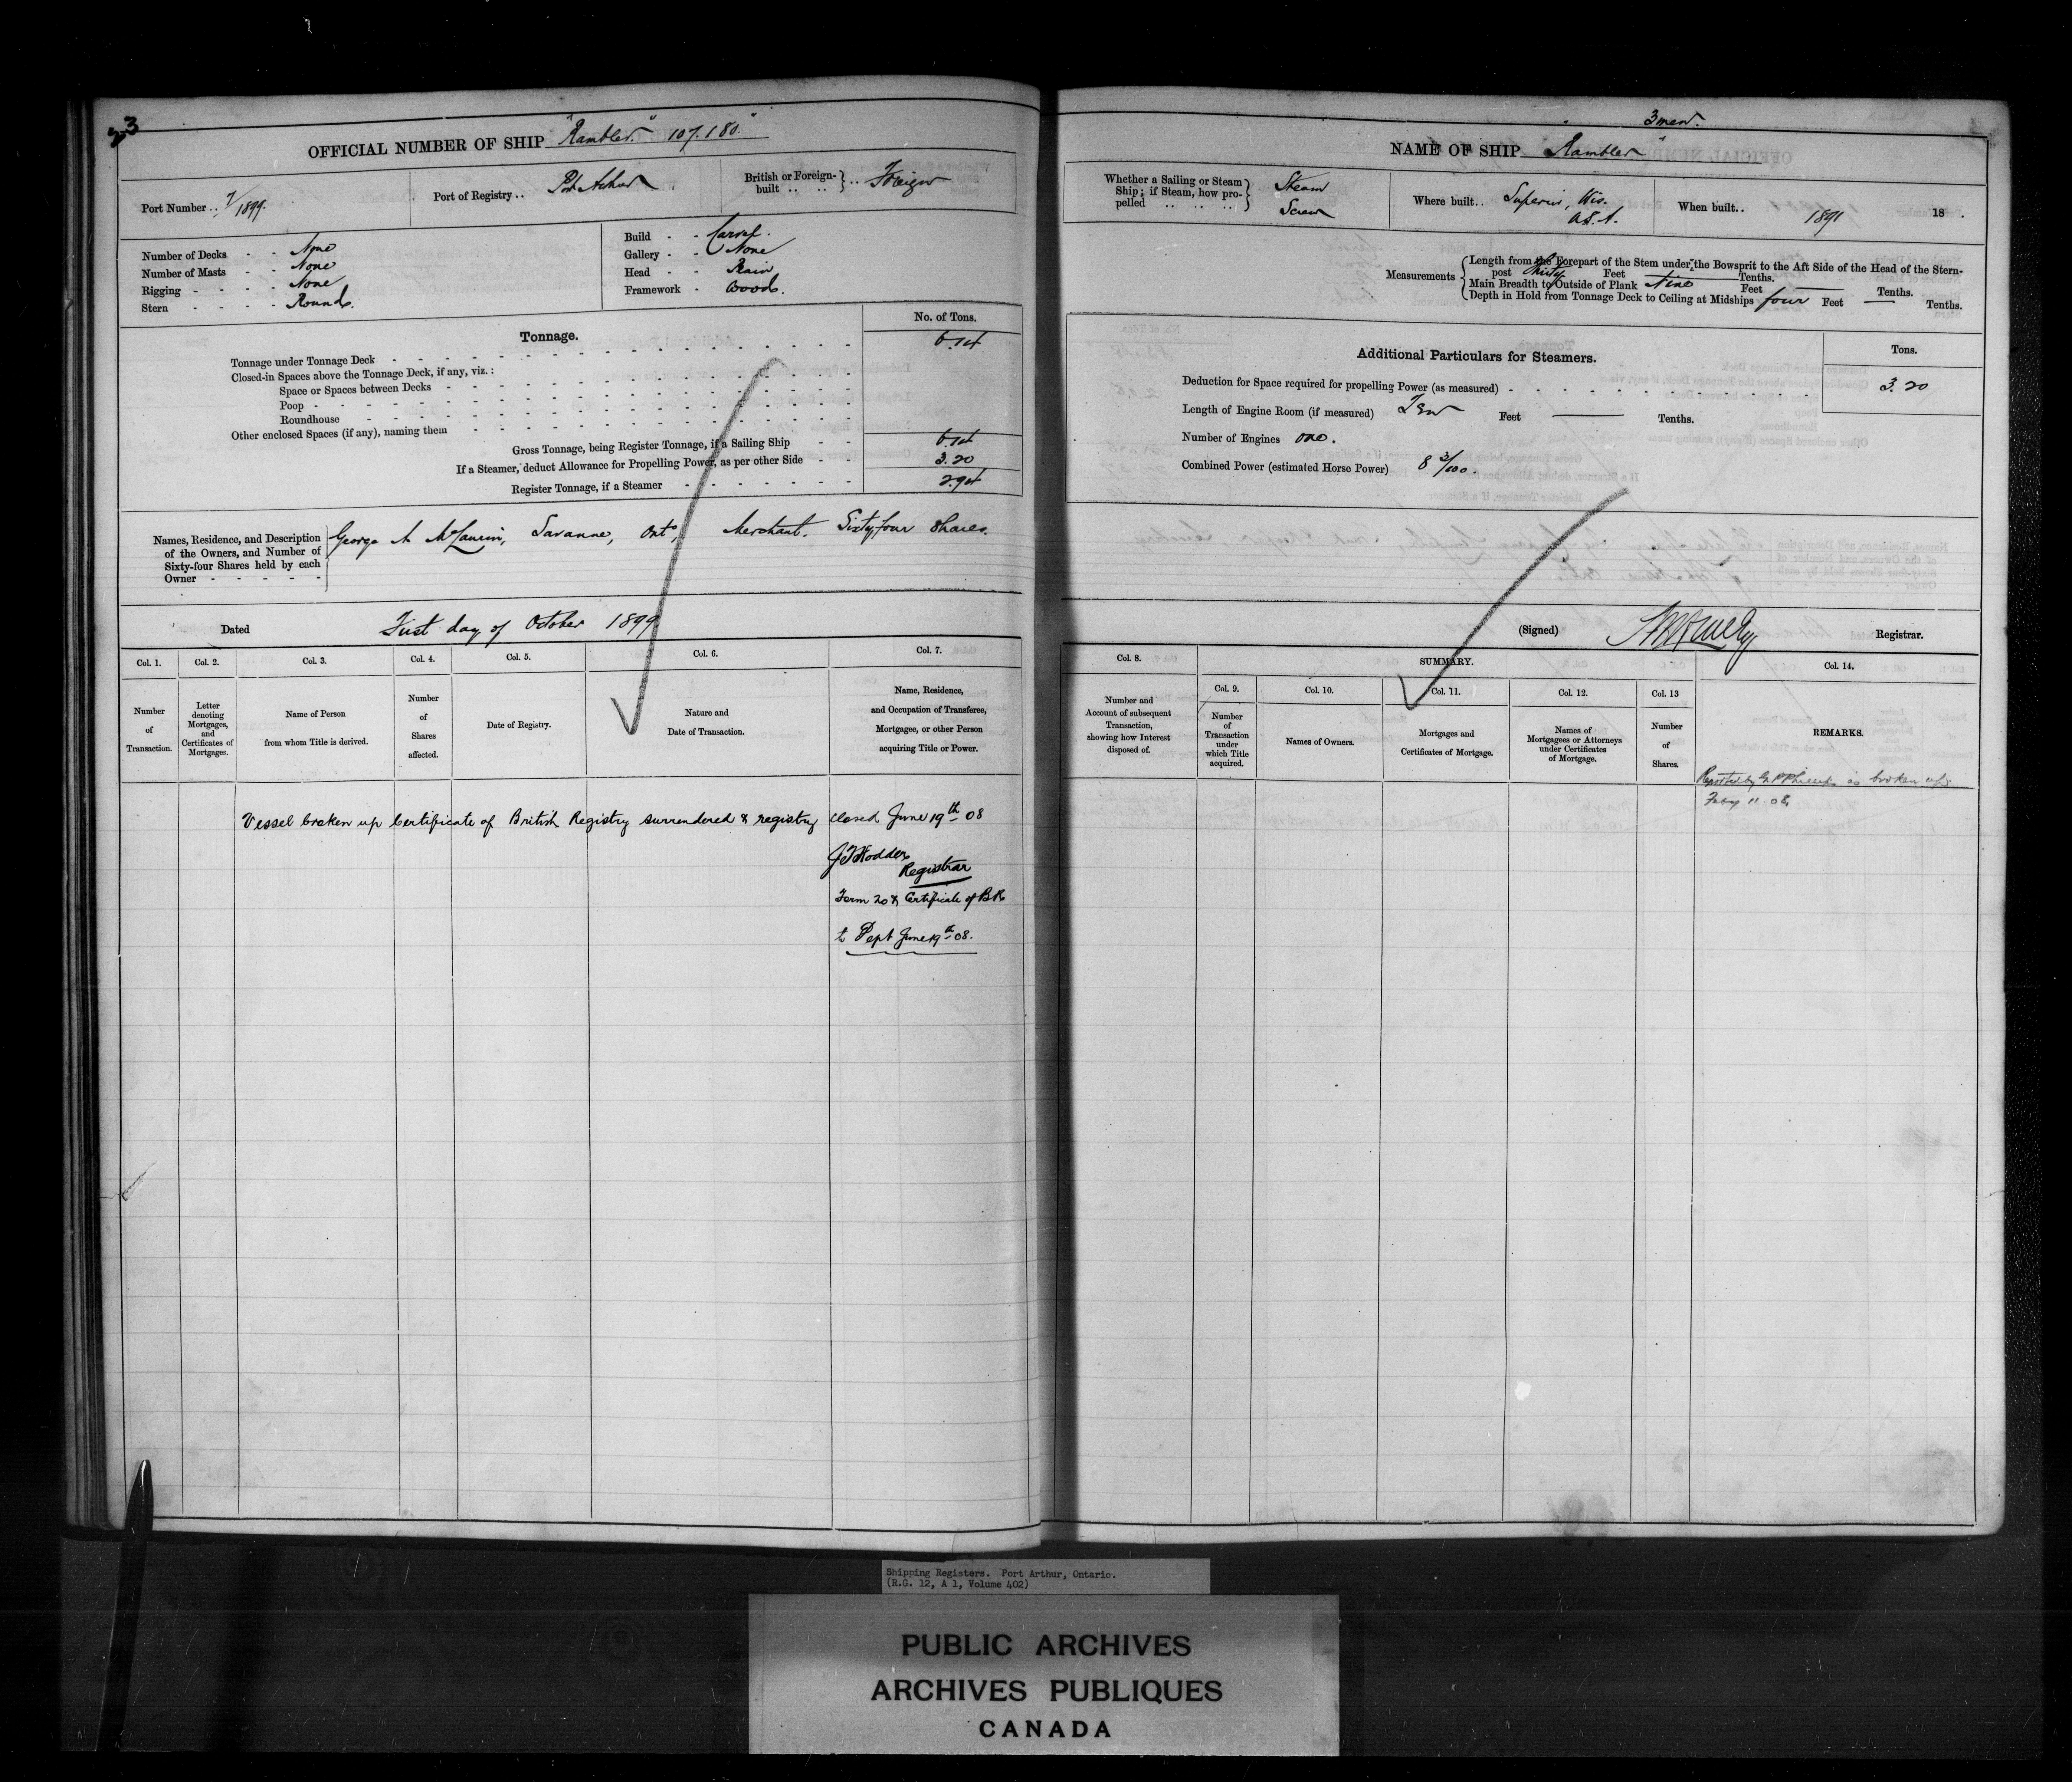 23
OFFICIAL NUMBER OF SHIP "Rambler" 107.180.
Port Number .. 7/1899.
Port of Registry .. Port Arthur
British or Foreign-built .. .. } .. Foreign
Number of Decks - - None
Number of Masts - - None
Rigging - - - - None
Stern - - - - Round
Build - - Carvel.
Gallery - - None
Head - - Plain
Framework - Wood.
Tonnage.
No. of Tons.
Tonnage under Tonnage Deck 6.14
Closed-in Spaces above the Tonnage Deck, if any, viz.:
Space or Spaces between Decks
Poop
Roundhouse
Other enclosed Spaces (if any), naming them
Gross Tonnage, being Register Tonnage, if a Sailing Ship 6.14
If a Steamer, deduct Allowance for Propelling Power, as per other Side 3.20
Register Tonnage, if a Steamer 2.94
Names, Residence, and Description
of the Owners, and Number of
Sixty-four Shares held by each
Owner
George A McLaurin, Savanne, Ont, Merchant. Sixty four Shares.
Dated First day of October 1899.
Col. 1. Col. 2. Col. 3. Col. 4. Col. 5. Col. 6. Col. 7.
Number of Transaction.
Letter denoting Mortgages, and Certificates of Mortgages.
Name of Person from whom Title is derived.
Number of Shares affected.
Date of Registry.
Nature and Date of Transaction.
Name, Residence, and Occupation of Transferee, Mortgagee, or other Person acquiring Title or Power.
Vessel broken up Certificate of British Registry surrendered & registry closed June 19th 08
Hodder
Registrar
Form 20 & Certificate of BR
to Dept June 19th 08.
3 men.
NAME OF SHIP "Rambler"
Whether a Sailing or Steam
Ship; if Steam, how pro-
pelled .. .. .. ..
Steam
Screw
Where built.. Superior, Wis.
U.S.A.
When built.. 1891 18 .
Measurements
Length from the Forepart of the Stem under the Bowsprit to the Aft Side of the Head of the Stern-
post thirty Feet — Tenths.
Main Breadth to Outside of Plank Nine Feet — Tenths.
Depth in Hold from Tonnage Deck to Ceiling at Midships four Feet — Tenths.
Additional Particulars for Steamers.
Tons.
Deduction for Space required for propelling Power (as measured) 3.20
Length of Engine Room (if measured) Ten Feet — Tenths.
Number of Engines one.
Combined Power (estimated Horse Power) 8 3/100.
(Signed) Registrar.
Col. 8. SUMMARY. Col. 14.
Col. 9. Col. 10. Col. 11. Col. 12. Col. 13
Number and Account of subsequent Transaction, showing how Interest disposed of.
Number of Transaction under which Title acquired.
Names of Owners.
Mortgages and Certificates of Mortgage.
Names of Mortgagees or Attorneys under Certificates of Mortgage.
Number of Shares.
REMARKS.
Reported by as broken up
Feby 11 08
Shipping Registers. Port Arthur, Ontario.
(R.G. 12, A 1, Volume 402)
PUBLIC ARCHIVES
ARCHIVES PUBLIQUES
CANADA